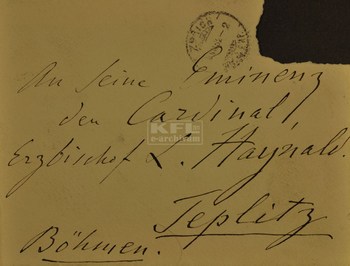 An Seine Eminenz
den Cardinal,
Erzbischof L. Haynald.
Teplitz
Böhmen.
KFL
e-archivum